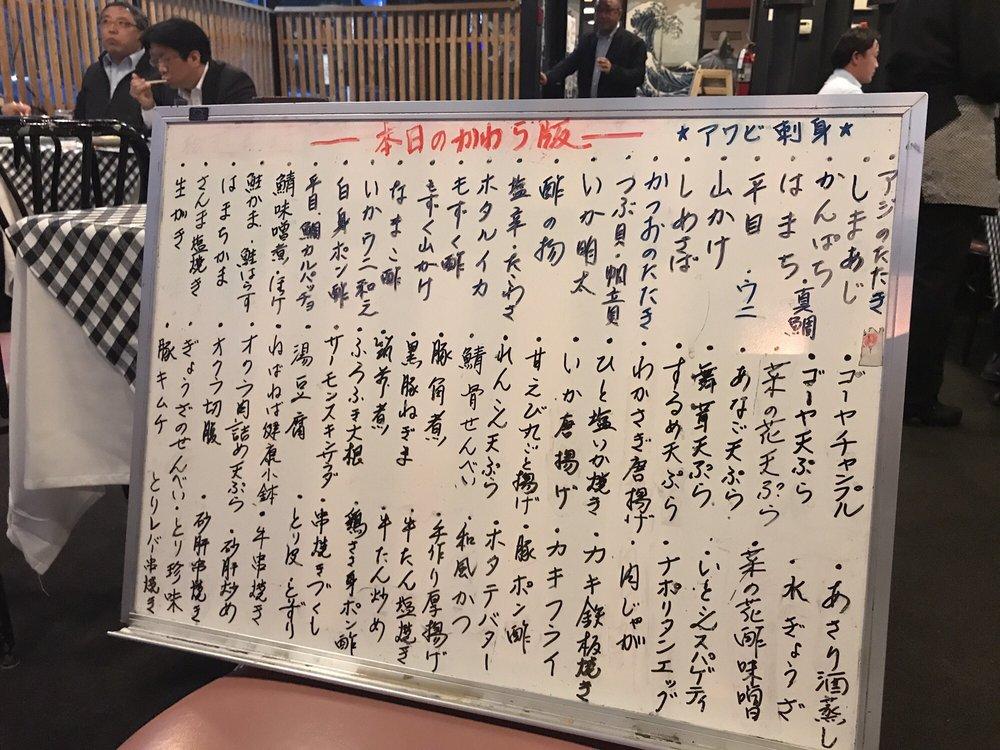 本日のかわら版
★アワビ刺身★
・アジのたたき
・しまあじ
・かんぱち
・はまち・真鯛
・平目・ウニ
・山かけ
・しめさば
・かつおのたたき
・つぶ貝・帆立貝
・いか明太
・酢の物
・塩辛・たこわさ
・ホタルイカ
・もずく酢
・もずく山かけ
・なまこ酢
・いかウニ和え
・白身ポン酢
・平目、鯛カルパッチョ
・鯖味噌煮・ほっけ
・鮭かま・鮭はらす
・はまちかま
・さんま塩焼き
・生がき
・ゴーヤチャンプル
・ゴーヤ天ぷら
・菜の花天ぷら
・あなご天ぷら
・舞茸天ぷら
・するめ天ぷら
・わかさぎ唐揚げ
・ひと塩いか焼き
・いか唐揚げ
・甘えび丸ごと揚げ
・れんこん天ぷら
・鯖骨せんべい
・豚角煮
・黒豚ねぎま
・筑前煮
・ふろふき大根
・サーモンスキンサラダ
・湯豆腐
・ねばねば健康小鉢
・オクラ肉詰め天ぷら
・オクラ切腹
・ぎょうざのせんべい
・豚キムチ
・あさり酒蒸し
・水ぎょうざ
・菜の花酢味噌
・いとこんスパゲティ
・ナポリタンエッグ
・肉じゃが
・カキ鉄板焼き
・カキフライ
・豚ポン酢
・ホタテバター
・和風かつ
・手作り厚揚げ
・牛たん塩焼き
・牛たん炒め
・鶏ささ身ポン酢
・串焼きづくし
・とり皮 とずり
・牛串焼き
・砂肝炒め
・砂肝串焼き
・とり珍味
とりレバー串焼き